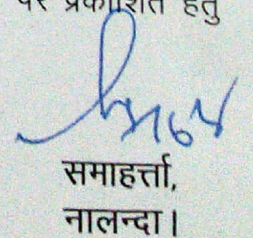 पर प्रकाशित हेतु
समाहर्त्ता,
नालन्दा।